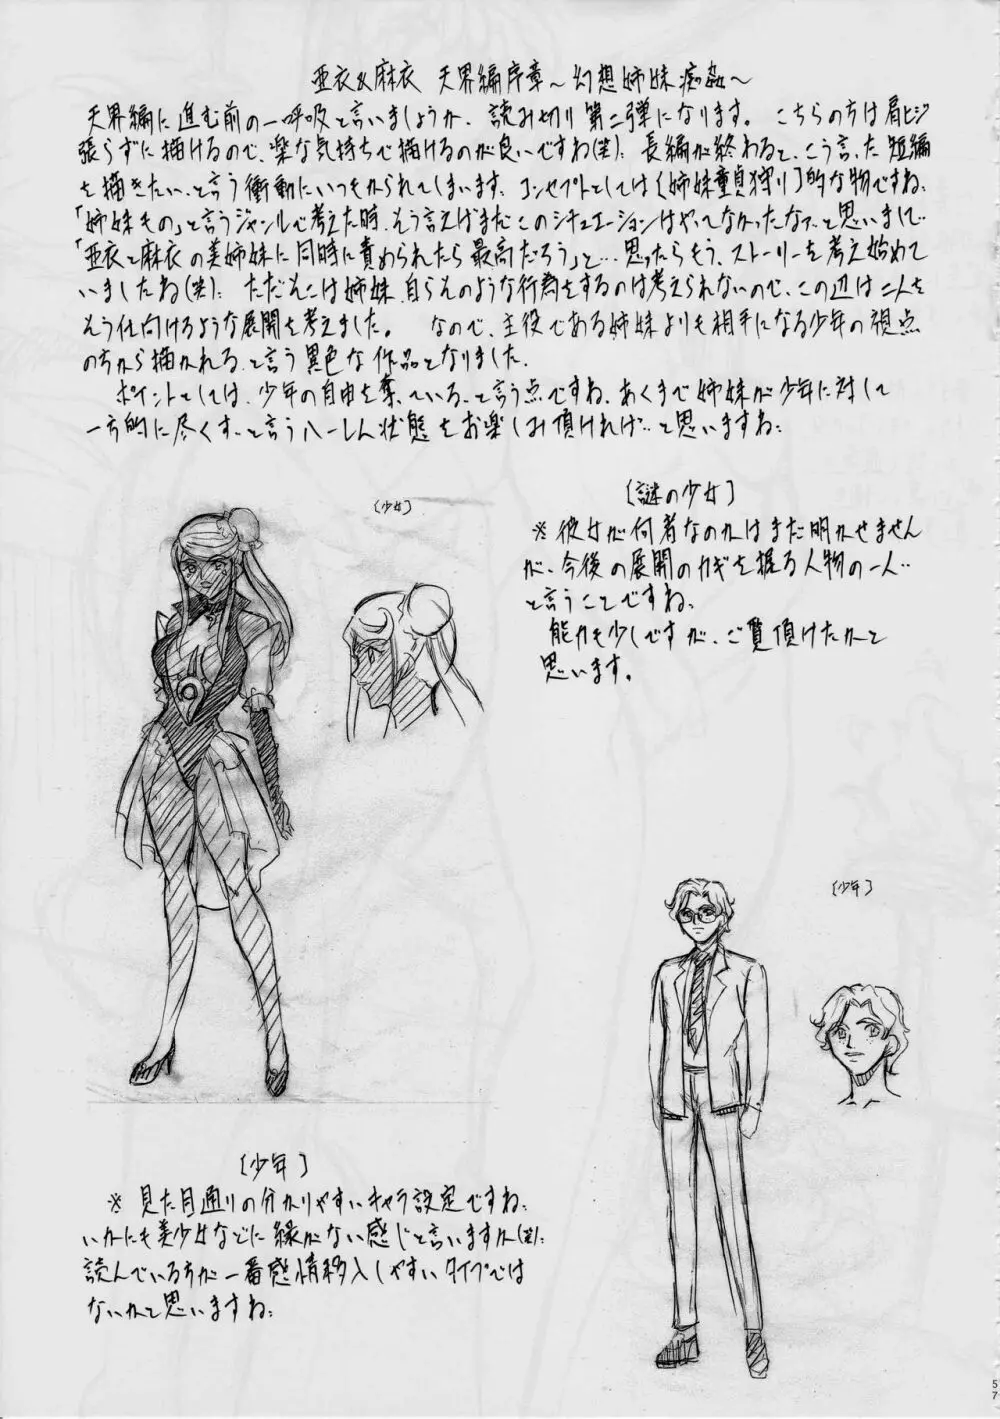 亜衣&麻衣 天界編序章～幻想姉妹痴姦～
天界編に進む前の一呼吸と言いましょうか、読み切り第二弾になります。こちらの方は肩ヒジ
張らずに描けるので、楽な気持ちで描けるのが良いですね(笑)、長編が終わると、こう言った短編
を描きたい、と言う衝動にいつもかられてしまいます、コンセプトとしては〔姉妹童貞狩り〕的な物ですね、
「姉妹もの」と言うジャンルで考えた時、そう言えばまだこのシチュエーションはやってなかったなァ、と思いまして‥
「亜衣と麻衣の美姉妹に同時に責められたら最高だろう」と…思ったらもう、ストーリーを考え始めて
いましたね(笑)、ただそこは姉妹、自らそのような行為をするのは考えられないので、この辺は二人を
そう仕向けるような展開を考えました。 なので、主役である姉妹よりも相手になる少年の視点
の方から描かれる、と言う異色な作品となりました、
ポイントとしては、少年の自由を奪っている、と言う点ですね、あくまで姉妹が少年に対して
一方的に尽くす、と言うハーレム状態をお楽しみ頂ければ‥と思いますね、
〔少女〕
〔謎の少女〕
※彼女が何者なのかはまだ明かせません
が、今後の展開のカギを握る人物の一人‥
と言うことですね、
能力も少しですが、ご覧頂けたかと
思います。
〔少年〕
〔少年〕
※見た目通りの分かりやすいキャラ設定ですね、
いかにも美少女などに縁がない感じと言いますか(笑)、
読んでいる方が一番感情移入しやすいタイプでは
ないかと思いますね、
57